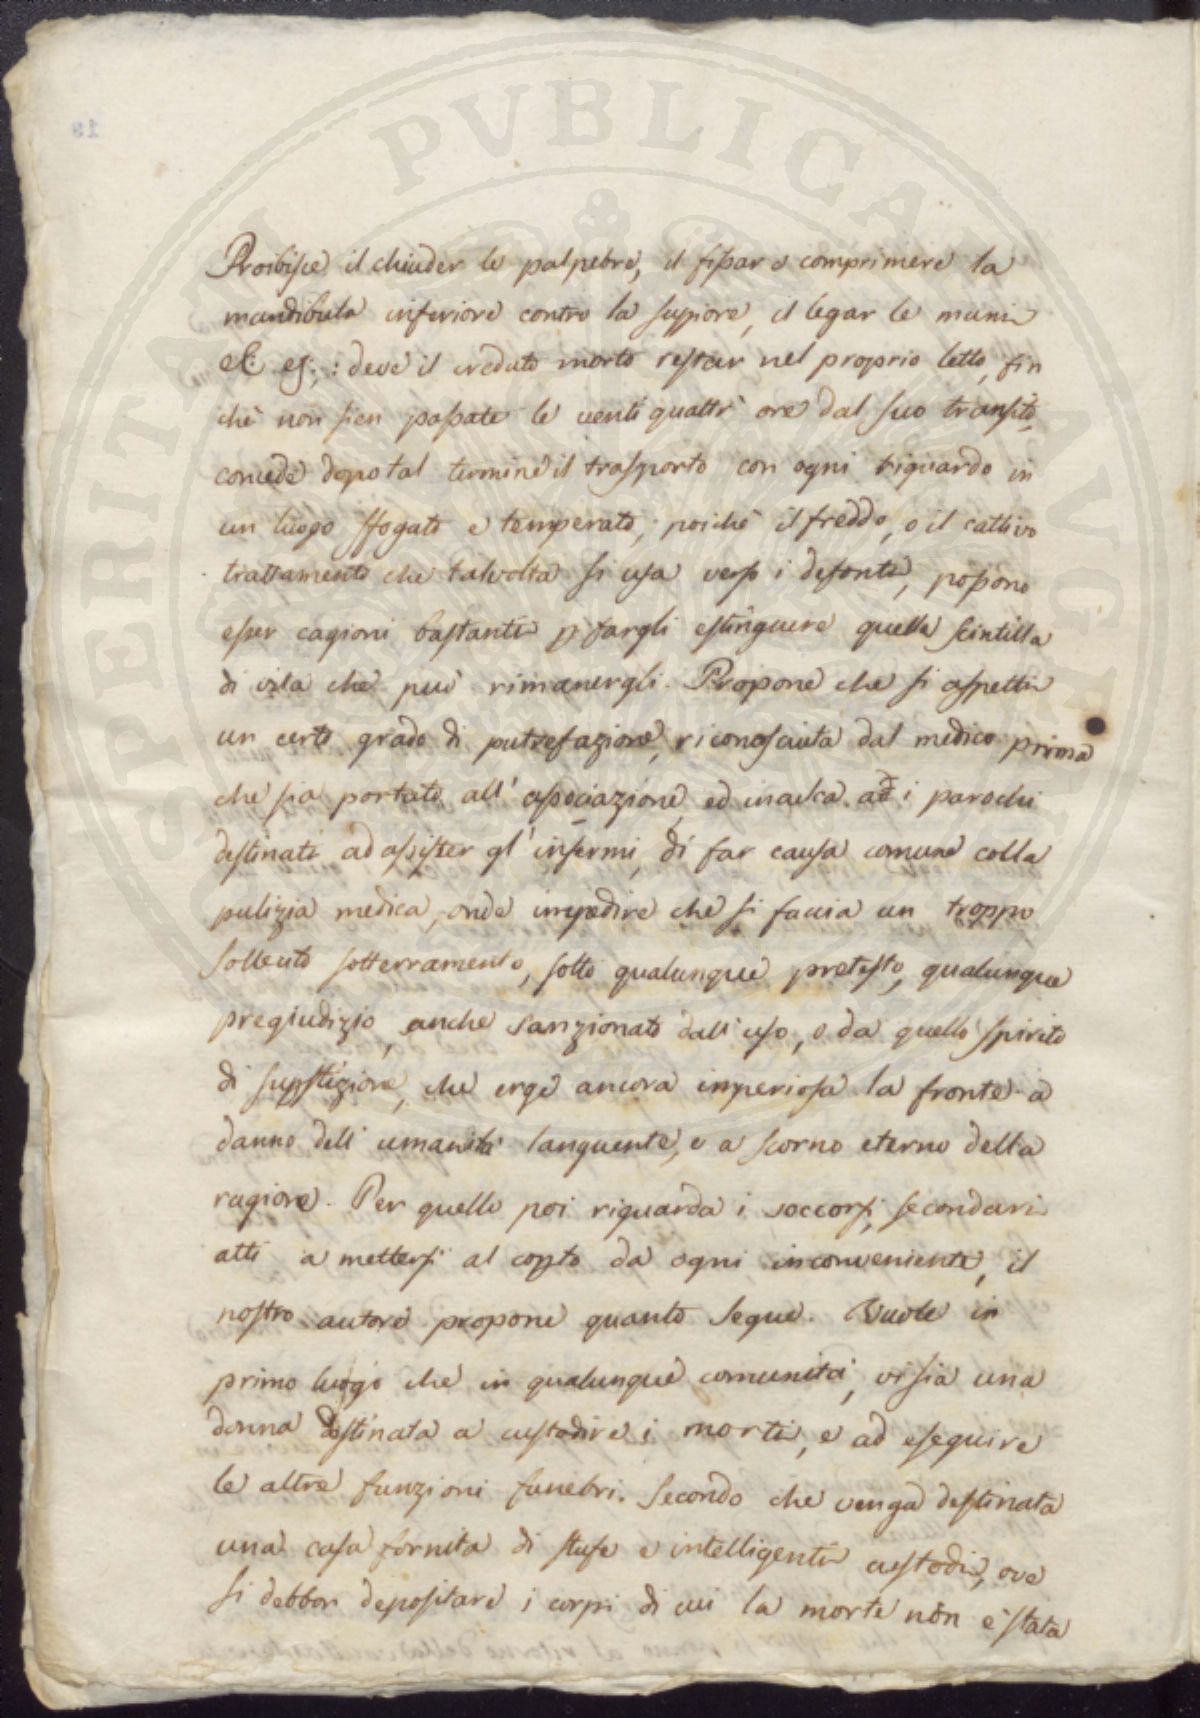 PROSPERITATI PVBLICAE AVGENDAE
Proibisce il chiuder le palpebre, il fissar o comprimere la
mandibula inferiore contro la suppiore, il legar le mani
&c: deve il creduto morto restar nel proprio letto, fin
chè non sien passate le venti quattr' ore dal suo transito,
concede dopo tal termine il trasporto con ogni riguardo in
un luogo sfogato e temperato; poichè il freddo, o il cattivo
trattamento che talvolta si usa verso i defonti, possono
esser cagioni bastanti p fargli estinguere quella scintilla
di vita che può rimanergli. Propone che si aspetti
un certo grado di putrefazione, riconosciuta dal medico prima
che sia portato all' associazione, ed inculca ad i parochi
destinati ad assister gl' infermi, di far causa comune colla
pulizia medica, onde impedire che si faccia un troppo
sollecito sotterramento, sotto qualunque pretesto, qualunque
pregiudizio, anche sanzionato dall' uso, o da quello spirito
di supstizione, che erge ancora imperiosa la fronte a
danno dell' umanità languente, e a scorno eterno della
ragione. Per quello poi riguarda i soccorsi secondari
atti a mettersi al copto da ogni inconveniente, il
nostro autore propone quanto segue. Vuole in
primo luogo che in qualunque comunità, vi sia una
donna destinata a custodire i morti, e ad eseguire
le altre funzioni funebri. Secondo che venga destinata
una casa fornita di stufe e intelligenti custodi, ove
si debbon depositare i corpi di cui la morte non è stata